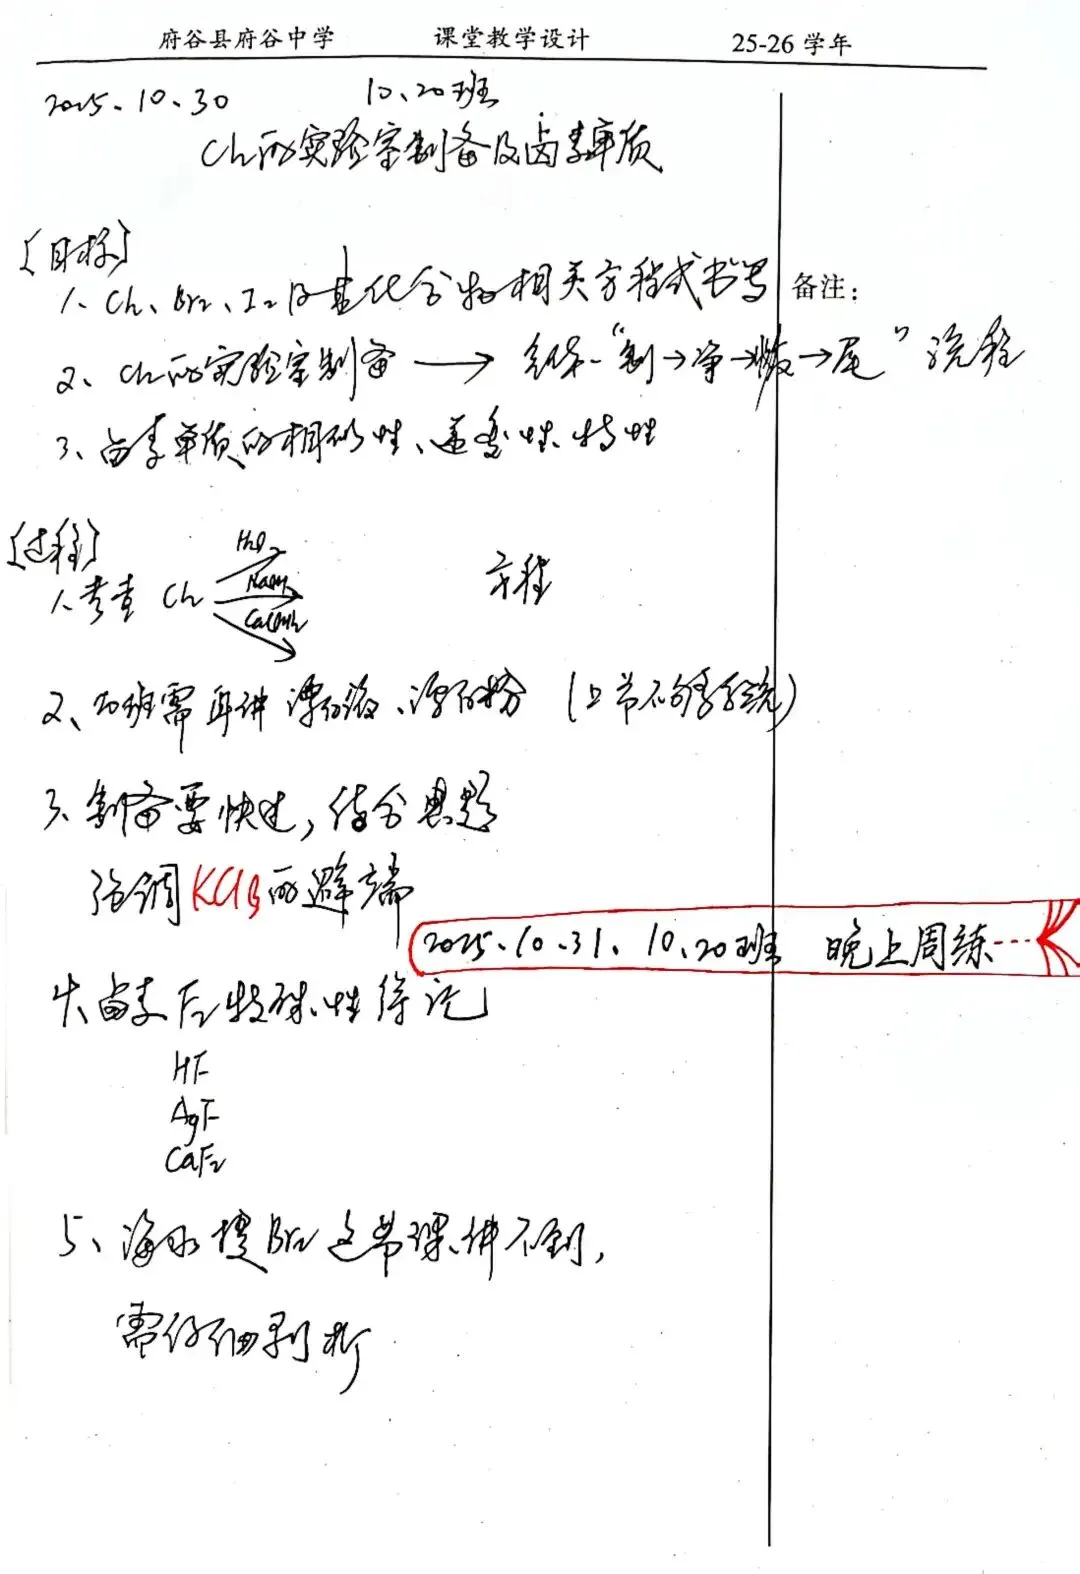 府谷县府谷中学 课堂教学设计 25-26 学年
2025.10.30 10、20班
Cl₂的实验室制备及卤素单质
[目标]
1、Cl₂、Br₂、I₂及其化合物相关方程式书写
备注：
2、Cl₂的实验室制备 → “制→净→收→尾”流程
3、卤素单质的相似性、递变性、特性
[过程]
1、考查 Cl₂ H₂O NaOH Ca(OH)₂ 方程
2、20班需再讲漂白液、漂白粉 (上节不够系统)
3、制备要快过，结合典题
强调KClO₃的避端
2025.10.31、10、20班 晚上周练
4、卤素 F₂特殊性
HF
AgF
CaF₂
5、海水提Br₂这节课讲不到，
需仔细剖析